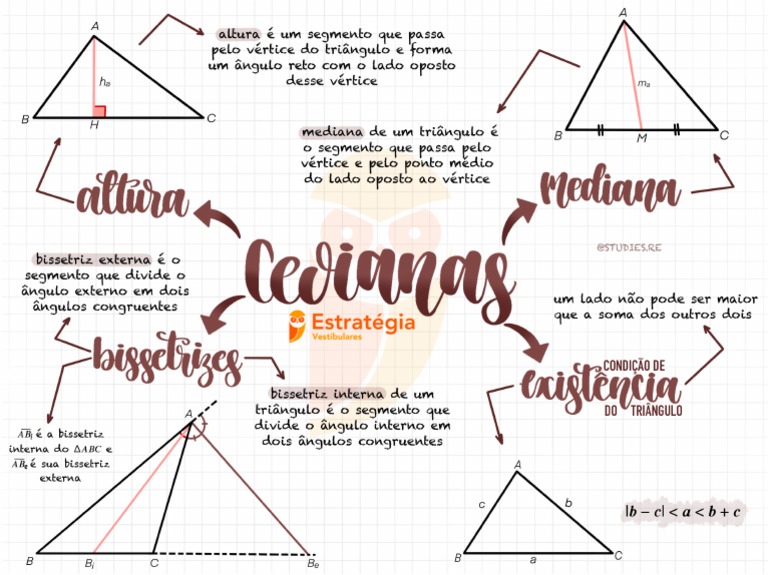 A
hₐ
B
H
C
altura é um segmento que passa
pelo vértice do triângulo e forma
um ângulo reto com o lado oposto
desse vértice
A
mₐ
B
M
C
mediana de um triângulo é
o segmento que passa pelo
vértice e pelo ponto médio
do lado oposto ao vértice
altura
Mediana
@STUDIES.RE
Cevianas
Estratégia
Vestibulares
bissetriz externa é o
segmento que divide o
ângulo externo em dois
ângulos congruentes
um lado não pode ser maior
que a soma dos outros dois
bissetrizes
CONDIÇÃO DE
existência
DO TRIÂNGULO
bissetriz interna de um
triângulo é o segmento que
divide o ângulo interno em
dois ângulos congruentes
ABᵢ é a bissetriz
interna do ΔABC e
ABₑ é sua bissetriz
externa
A
B
Bᵢ
C
Bₑ
A
c
b
B
a
C
|b − c| < a < b + c